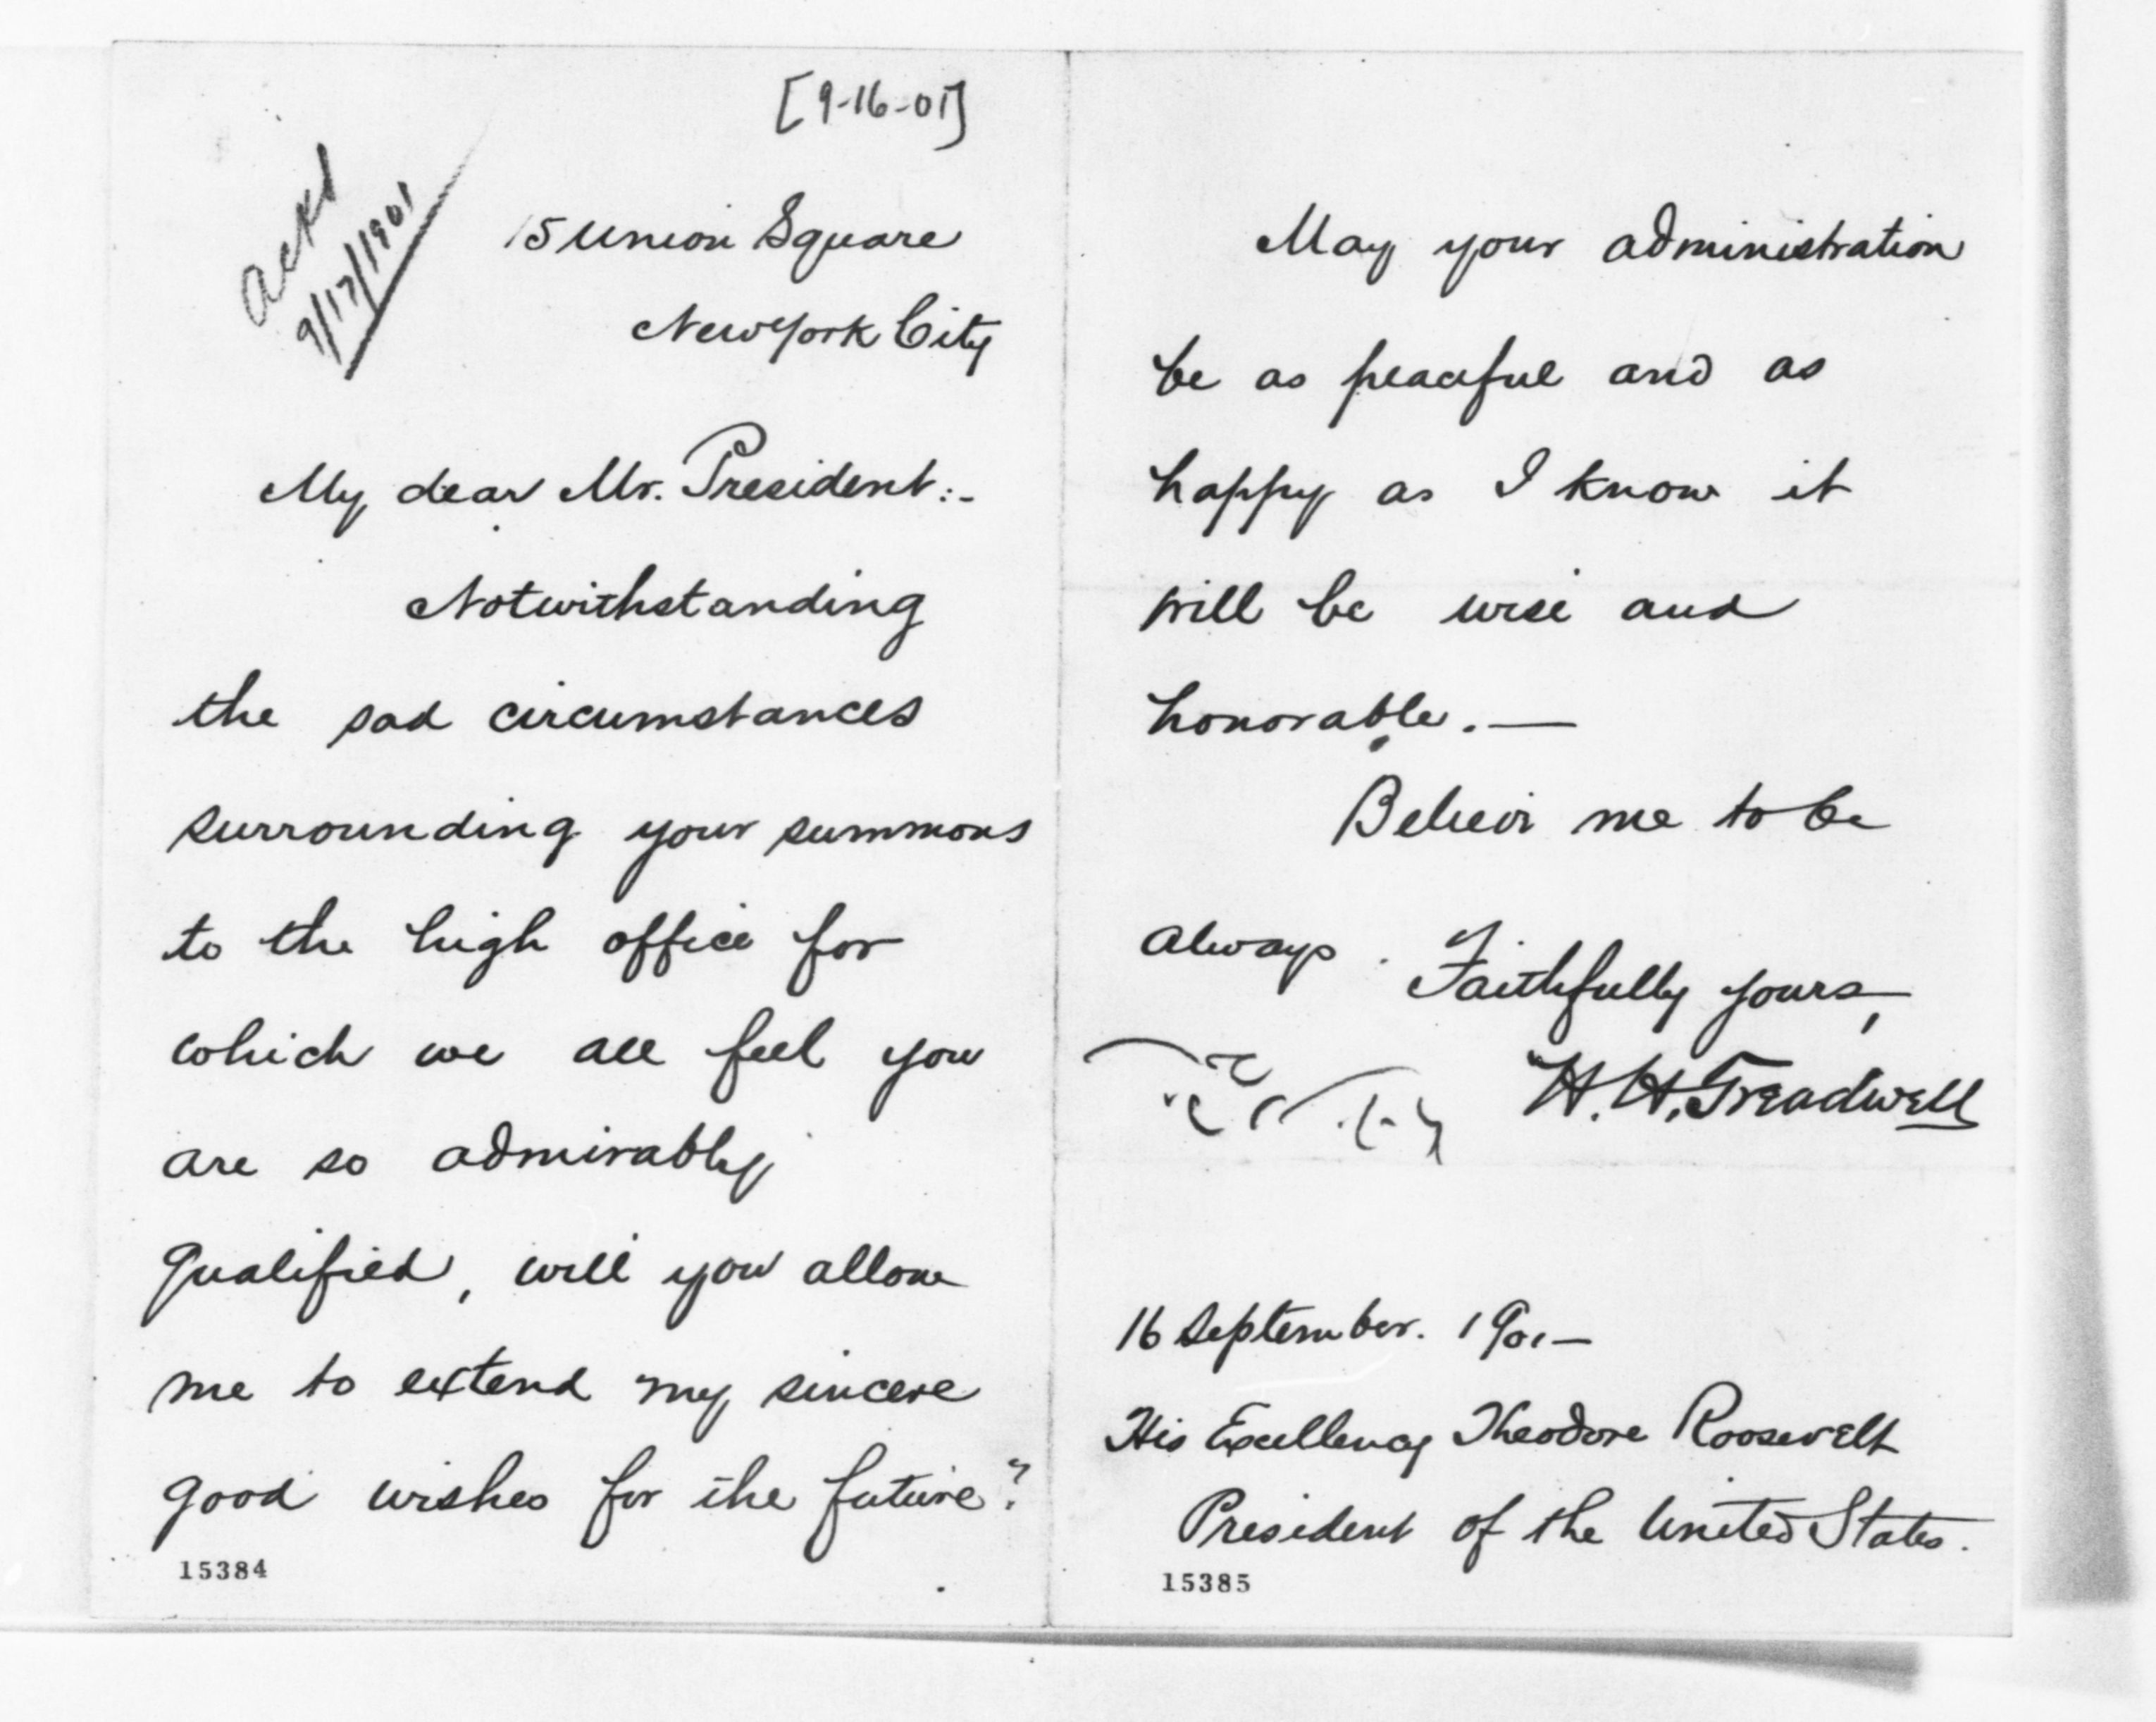 [9-16-01]
Ackd
9/17/1901
15 Union Square
New York City
My dear Mr. President:-
Notwithstanding
the sad circumstances
surrounding your summons
to the high office for
which we all feel you
are so admirably
qualified, will you allow
me to extend my sincere
good wishes for the future?
15384
May your administration
be as peaceful and as
happy as I know it
will be wise and
honorable.—
Believe me to be
always
Faithfully yours,
H. H. Treadwell
16 September. 1901—
His Excellency Theodore Roosevelt
President of the United States.
15385